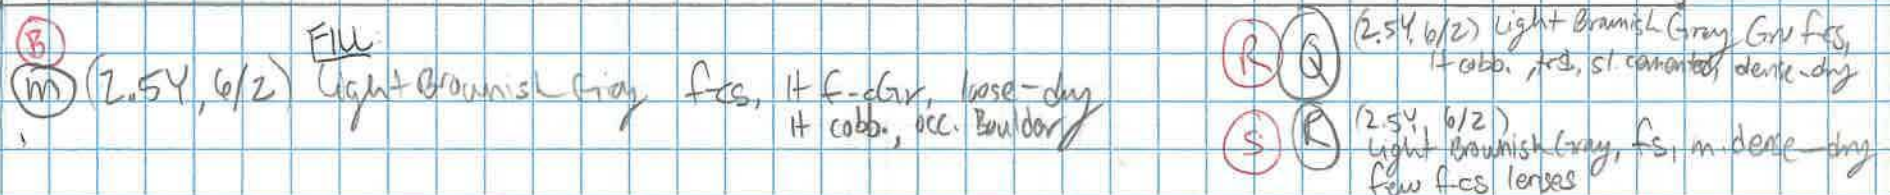 B
FILL
m (2.5Y, 6/2) Light Brownish Gray f-cs, lt f-cGr, loose-dry
lt cobb., occ. Boulder
R Q (2.5Y, 6/2) Light Brownish Gray Grv fcs,
lt cobb., sl. cemented, dense-dry
S R (2.5Y, 6/2)
Light Brownish Gray, fs, m. dense-dry
few f-cs lenses